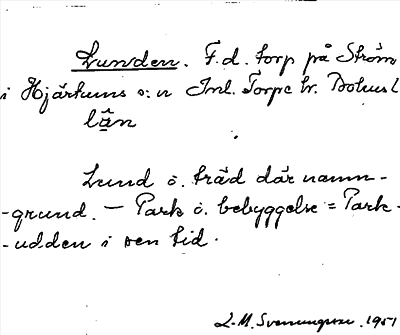 Lunden. F.d. torp på Ström
i Hjärtums s:n Inl. Torpe hr. Bohus
län
Lund o. träd där namn-
-grund. — Park o. bebyggelse = Park-
-udden i sen tid.
L.M. Svenungsson. 1951